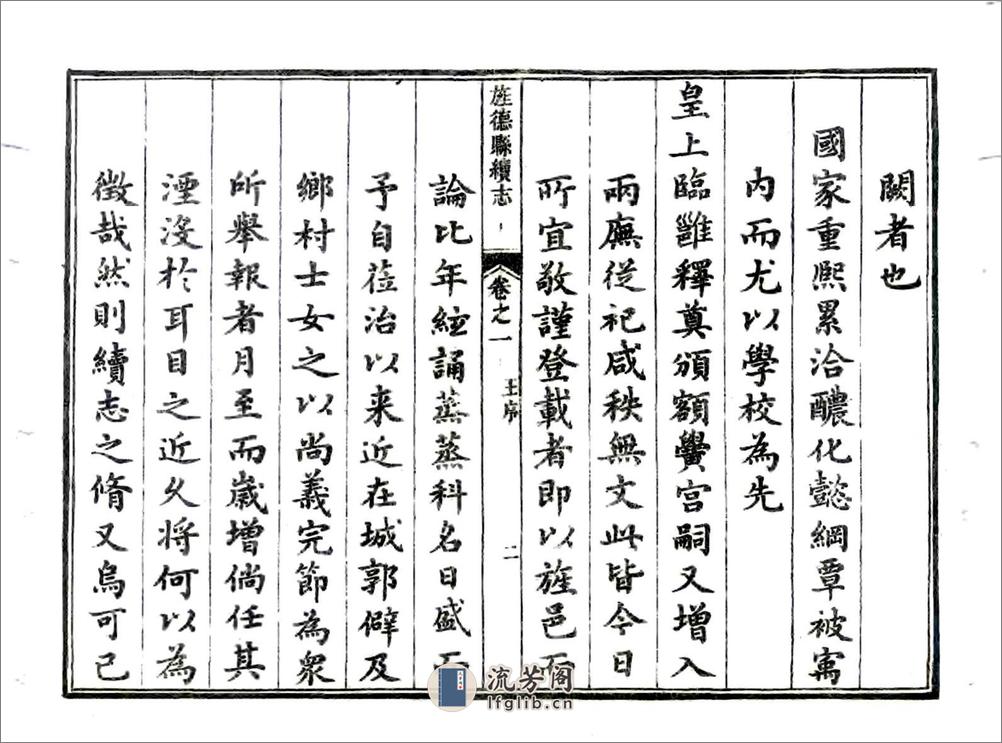 闕者也
國家重熙累洽醲化懿綱覃被寓
内而尤以學校為先
皇上臨雝釋奠頒額黌宫嗣又增入
兩廡從祀咸秩無文此皆今日
所宜敬謹登載者即以旌邑而
旌德縣續志 卷之一 王序 二
論比年絃誦蒸蒸科名日盛而
予自莅治以来近在城郭僻及
鄉村士女之以尚義完節為衆
所舉報者月至而歲增倘任其
湮沒於耳目之近久將何以為
徵哉然則續志之脩又烏可已
流芳阁
lfglib.cn